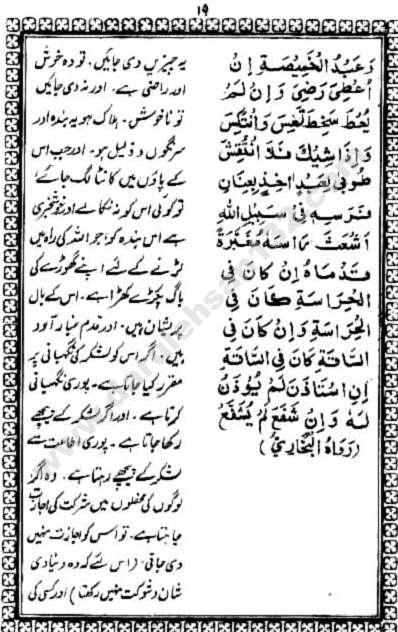 ۱۹
وَعَبْدُ الْخَمِيصَةِ اِنْ
اُعْطِيَ رَضِيَ وَاِنْ لَمْ
يُعْطَ سَخِطَ تَعِسَ وَانْتَكَسَ
وَاِذَا شِيْكَ فَلَا انْتَقَشَ
طُوْبٰى لِعَبْدٍ اٰخِذٍ بِعِنَانِ
فَرَسِهٖ فِيْ سَبِيْلِ اللهِ
اَشْعَثَ رَاْسُهٗ مُغَبَّرَةً
قَدَمَاهُ اِنْ كَانَ فِي
الْحِرَاسَةِ كَانَ فِي
الْحِرَاسَةِ وَاِنْ كَانَ فِي
السَّاقَةِ كَانَ فِي السَّاقَةِ
اِنِ اسْتَاْذَنَ لَمْ يُؤْذَنْ
لَهٗ وَاِنْ شَفَعَ لَمْ يُشَفَّعْ
(رَوَاهُ الْبُخَارِيُّ)
یہ چیزیں دی جائیں۔ تو وہ خوش
اور راضی ہے۔ اور نہ دی جائیں
تو ناخوش۔ ہلاک ہو یہ بندہ اور
سرنگوں و ذلیل ہو۔ اور جب اس
کے پاؤں میں کانٹا لگ جائے!
تو کوئی اس کو نہ نکالے اور خوشخبری
ہے اس بندہ کو! جو اللہ کی راہ میں
لڑنے کے لئے اپنے گھوڑے کی
باگ پکڑے کھڑا ہے۔ اس کے بال
پریشان ہیں۔ اور قدم غبار آلود
ہیں۔ اگر اس کو لشکر کی نگہبانی پر
مقرر کیا جاتا ہے۔ پوری نگہبانی
کرتا ہے۔ اور اگر لشکر کے پیچھے
رکھا جاتا ہے۔ پوری اطاعت سے
لشکر کے پیچھے رہتا ہے۔ وہ اگر
لوگوں کی محفلوں میں شرکت کی اجازت
چاہتا ہے۔ تو اس کو اجازت نہیں
دی جاتی۔ (اس لئے کہ وہ دنیاوی
شان و شوکت نہیں رکھتا) اور کسی کی